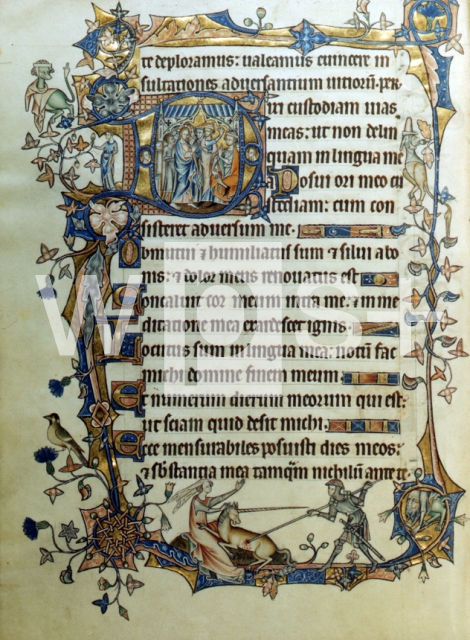 te deploramus: ualeamus euincere in
sultationes aduersantium uitiorū. per.
Dixi custodiam uias
meas: ut non delin
quam in lingua me
a Posui ori meo cu
stodiam: cum con
sisteret aduersum me.
Obmutui ⁊ humiliatus sum ⁊ silui a bo
nis: ⁊ dolor meus renouatus est
Concaluit cor meum intra me: ⁊ in me
ditacione mea exardescet ignis.
Locutus sum in lingua mea: notū fac
michi domine finem meum
Et numerum dierum meorum qui est:
ut sciam quid desit michi.
Ecce mensurabiles posuisti dies meos:
⁊ substantia mea tamq̄m nichilū ante te.
wps+